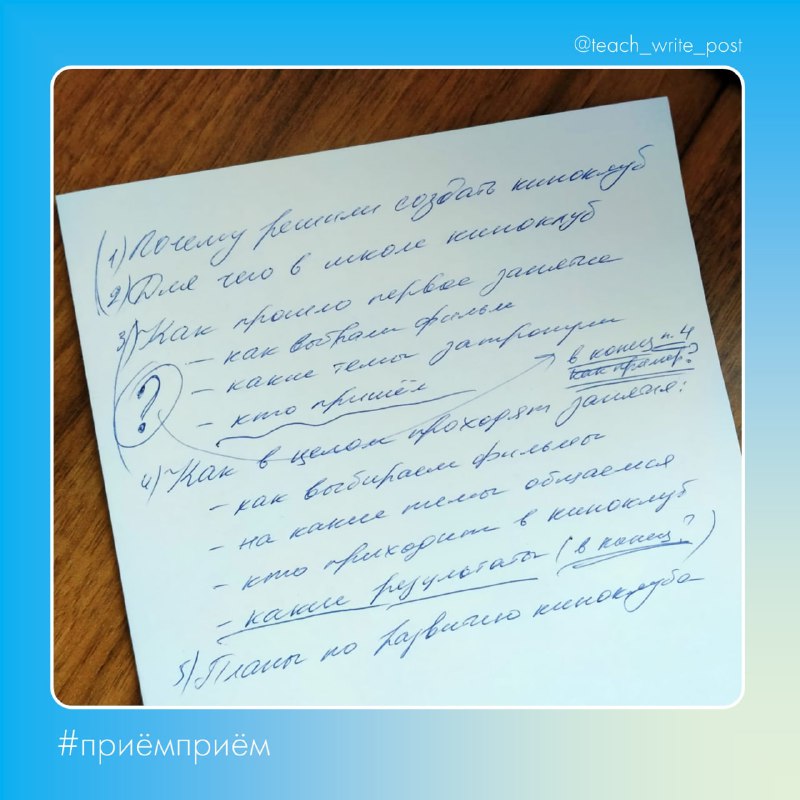 @teach_write_post
1) Почему решили создать киноклуб
2) Для чего в школе киноклуб
3) Как прошло первое занятие
- как выбрали фильм
- какие темы затронули
- кто пришёл
?
в конец п. 4
как пример?
4) Как в целом проходят занятия:
- как выбираем фильмы
- на какие темы общаемся
- кто приходит в киноклуб
- какие результаты (в конец?)
5) Планы по развитию киноклуба
#приёмприём